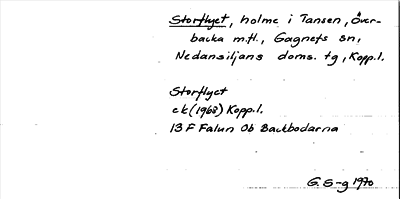 Storflyet, holme i Tansen, Över-
backa m.fl., Gagnefs sn,
Nedansiljans doms. tg, Kopp.l.
Storflyet
ek (1963) Kopp.l.
13 F Falun 0b Backbodarna
G. S-g 1970